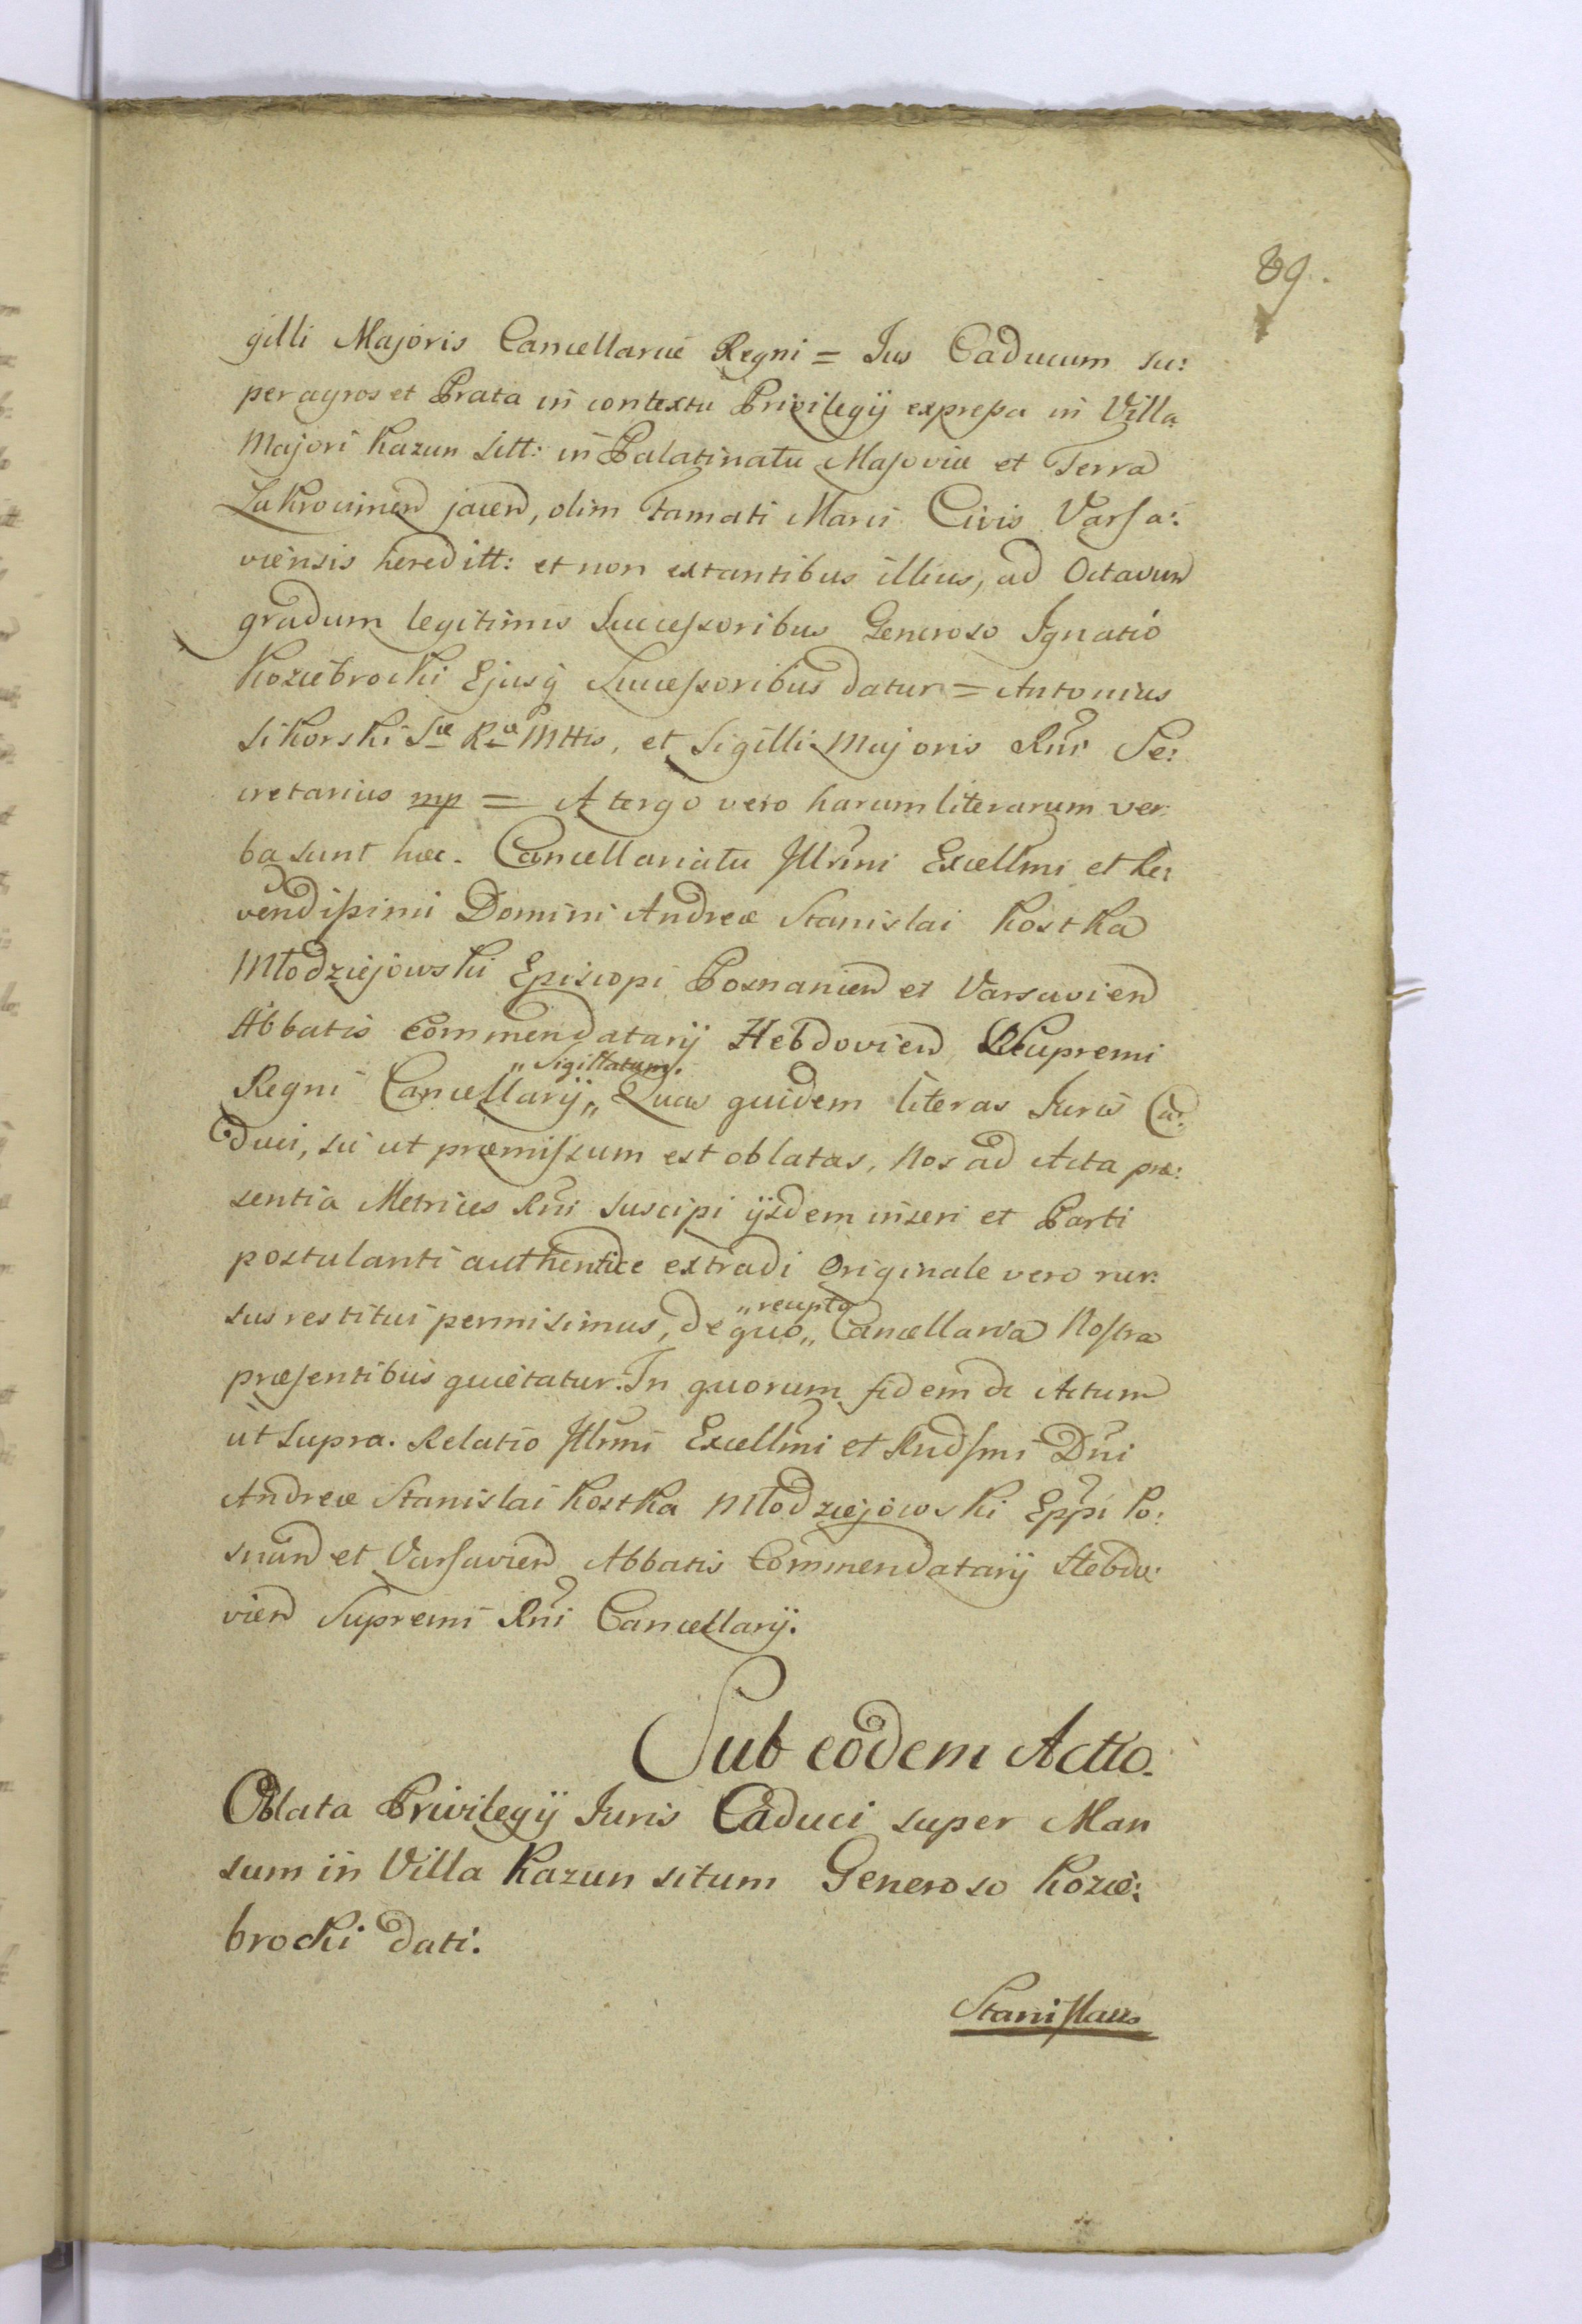 89.
gilli Majoris Cancellariæ Regni = Jus Caducum su:
per agros et Prata in contextu Privilegij expreßa in Villa
Majori Kazun sitt: in Palatinatu Masoviæ et Terra
Zakrocimen jacen, olim Famati Marci Civis Varsa:
viensis hereditt: et non extantibus illius, ad Octavum
gradum legitimis Successoribus Generoso Ignatio
Koziebrocki Ejusq Successoribus datur = Antonius
Sikorski Sæ Ræ Mttis, et Sigilli Majoris Rni Se:
cretarius mp = A tergo vero harum literarum ver
ba sunt hæc. Cancellariatu Illrmi Excellmi et Re:
vendißimi Domini Andreæ Stanislai Kostka
Młodziejowski Episcopi Posnanien et Varsavien
Abbatis Commendatarij Hebdovien Supremi
„Sigillatum.
Regni Cancellarij„ Quas quidem literas Juris Ca:
duci, sic ut præmissum est oblatas, Nos ad Acta præ:
sentia Metrices Rni suscipi ijsdem inseri et Parti
postulanti authentice extradi Originale vero rur:
„recepto
sus restitui permisimus, de quo„ Cancellaria Nostra
præsentibus quietatur. In quorum fidem di Actum
ut supra. Relatio Illrmi Excellmi et Rndsmi Dni
Andreæ Stanislai Kostka Młodziejowski Eppi Po:
snan et Varsavien Abbatis Commendatarij Hebdo:
vien Supremi Rni Cancellarij.
Sub eodem Actu.
Oblata Privilegij Juris Caduci super Man
sum in Villa Kazun situm Generoso Kozie:
brocki dati.
Stanislaus